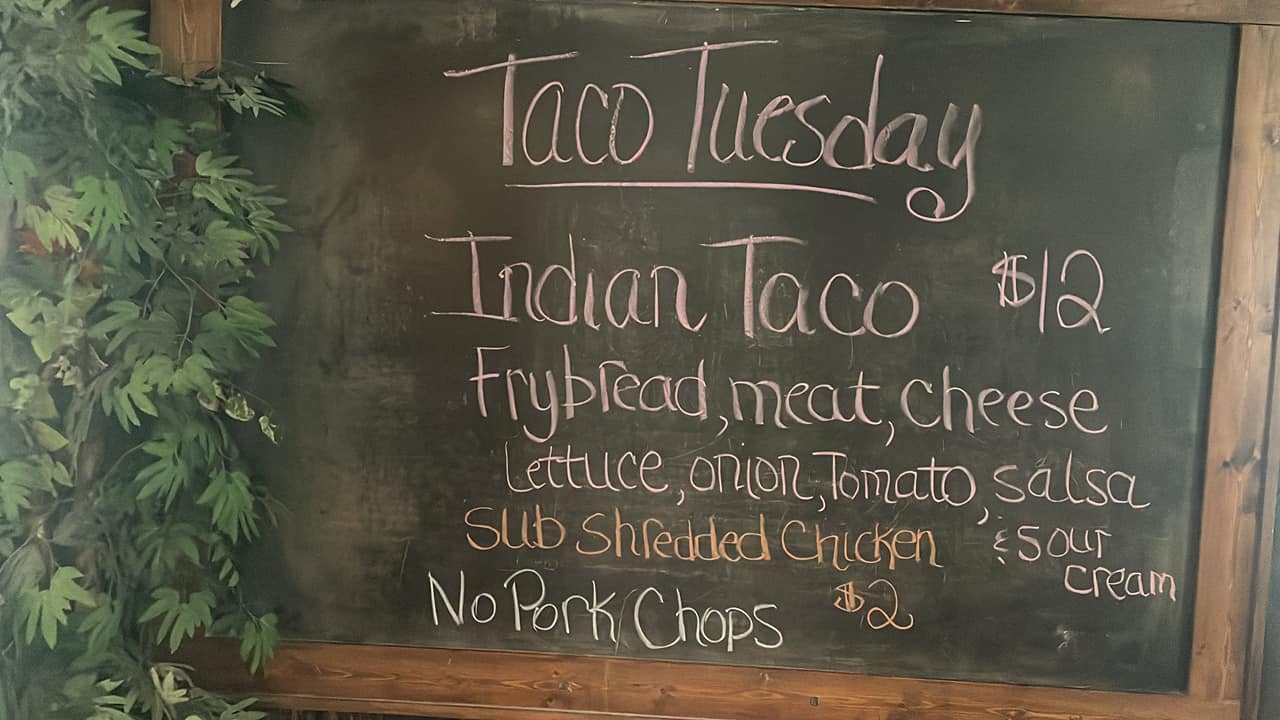 Taco Tuesday
Indian Taco $12
Frybread, meat, cheese
Lettuce, onion, Tomato, salsa
& sour
cream
Sub Shredded Chicken
$2
No Pork Chops